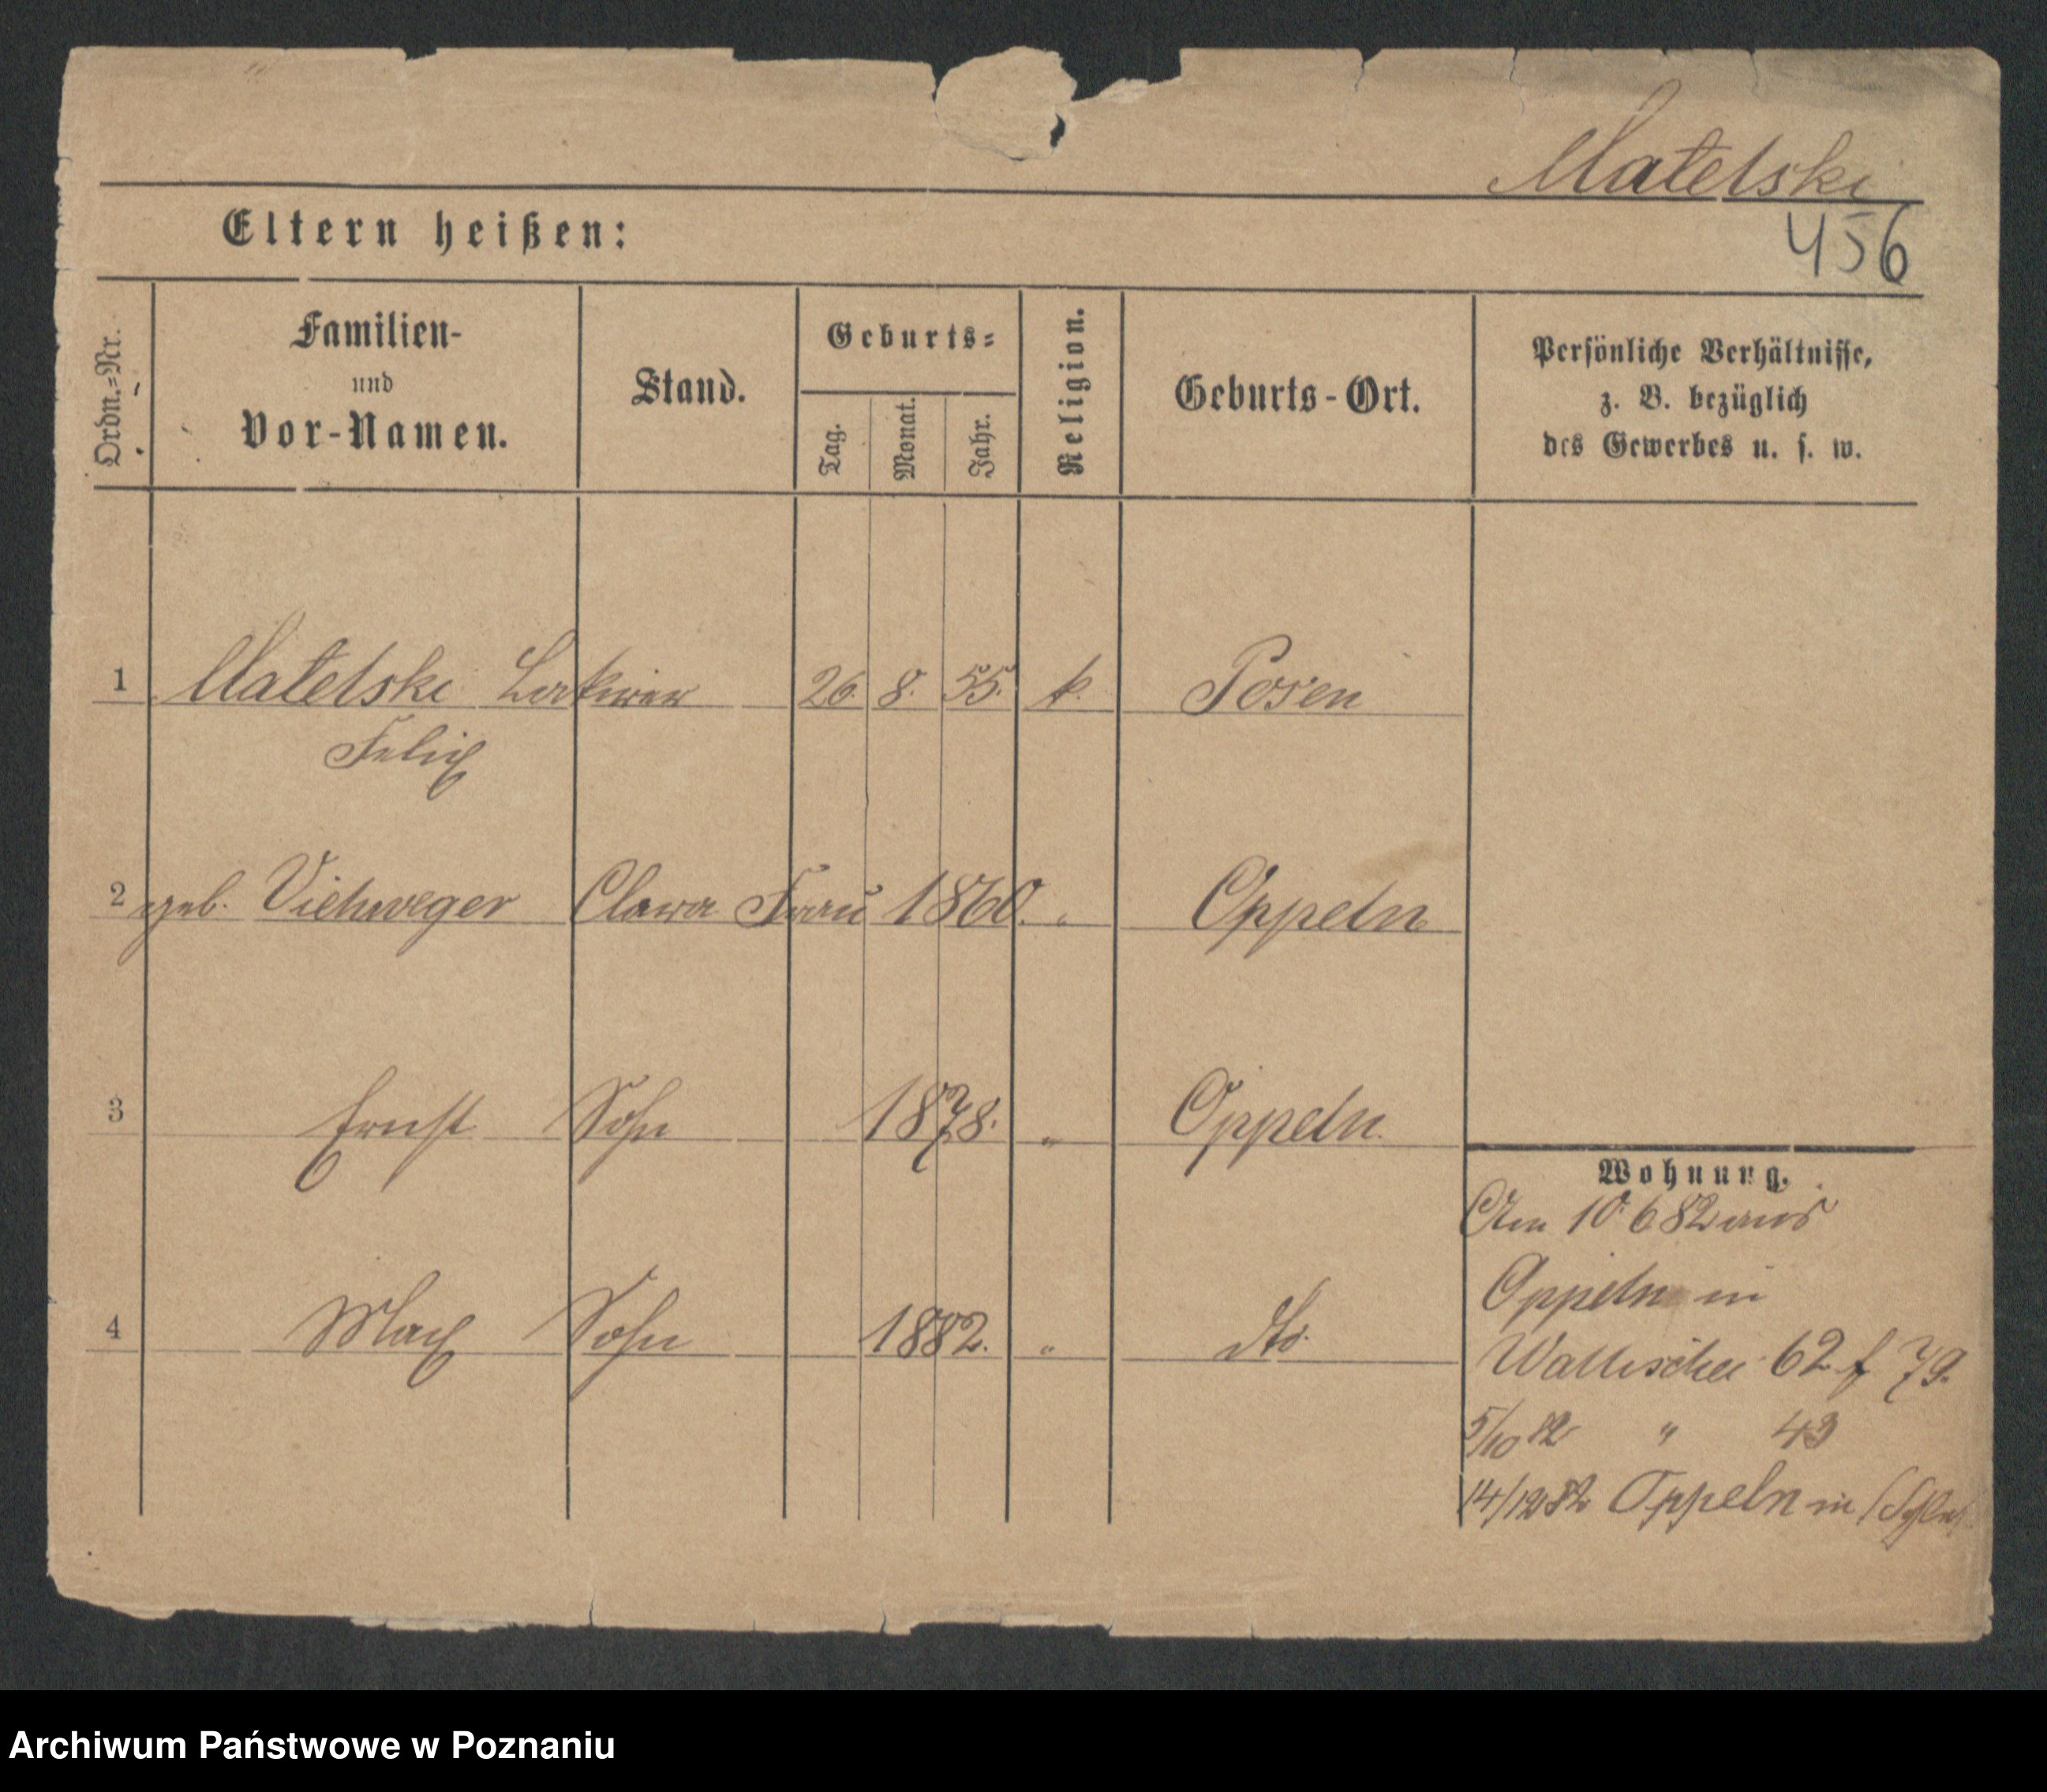 Matelski
456
Eltern heißen:
Ordn.=Nr.
Familien-
und
Vor-Namen.
Stand.
Geburts=
Tag.
Monat.
Jahr.
Religion.
Geburts-Ort.
Persönliche Verhältnisse,
z. B. bezüglich
des Gewerbes u. s. w.
1 Matelski Lakirer 26. 8. 55. k. Posen
Felix
2 geb. Viehweger Clara Frau 1860. " Oppeln
3 Ernst Sohn 1878. " Oppeln
4 Max Sohn 1882. " dto.
Wohnung.
Am 10 6 82 aus
Oppeln in
Wallischei 62 f 79.
5/10 82 " 43
14/12 82 Oppeln in
Archiwum Państwowe w Poznaniu